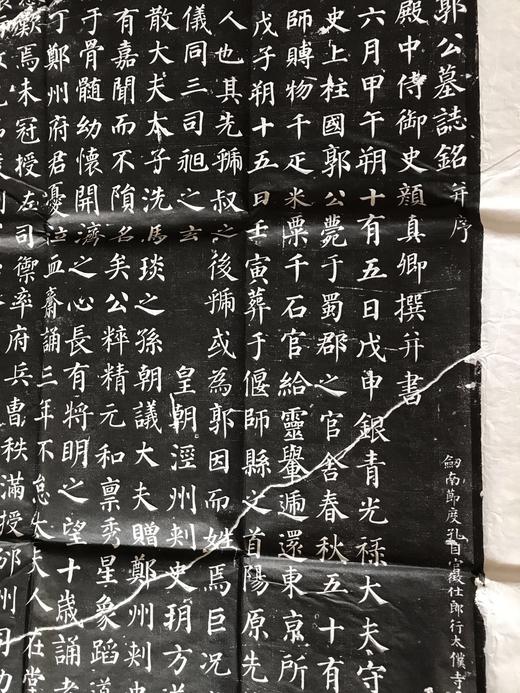 郭公墓誌銘并序
劒南節度孔目官徵仕郎行太僕寺
殿中侍御史顏真卿撰并書
六月甲午朔十有五日戊申銀青光祿大夫守
史上柱國郭公薨于蜀郡之官舍春秋五十有
師賻物千疋米粟千石官給靈轝遞還東京所
戊子朔十五日壬寅葬于偃師縣之首陽原先
人也其先虢叔之後虢或為郭因而姓焉巨況
儀同三司昶之玄 皇朝涇州刺史朔方道
散大夫太子洗馬琰之孫朝議大夫贈鄭州刺史
有嘉聞而不隕名矣公粹精元和禀秀星象蹈道
于骨髓幼懷開濟之心長有將明之望十歲誦老
丁鄭州府君憂泣血齋誦三年不怠太夫人在堂
歎焉未冠授左司禦率府兵曹秩滿授邠州司功